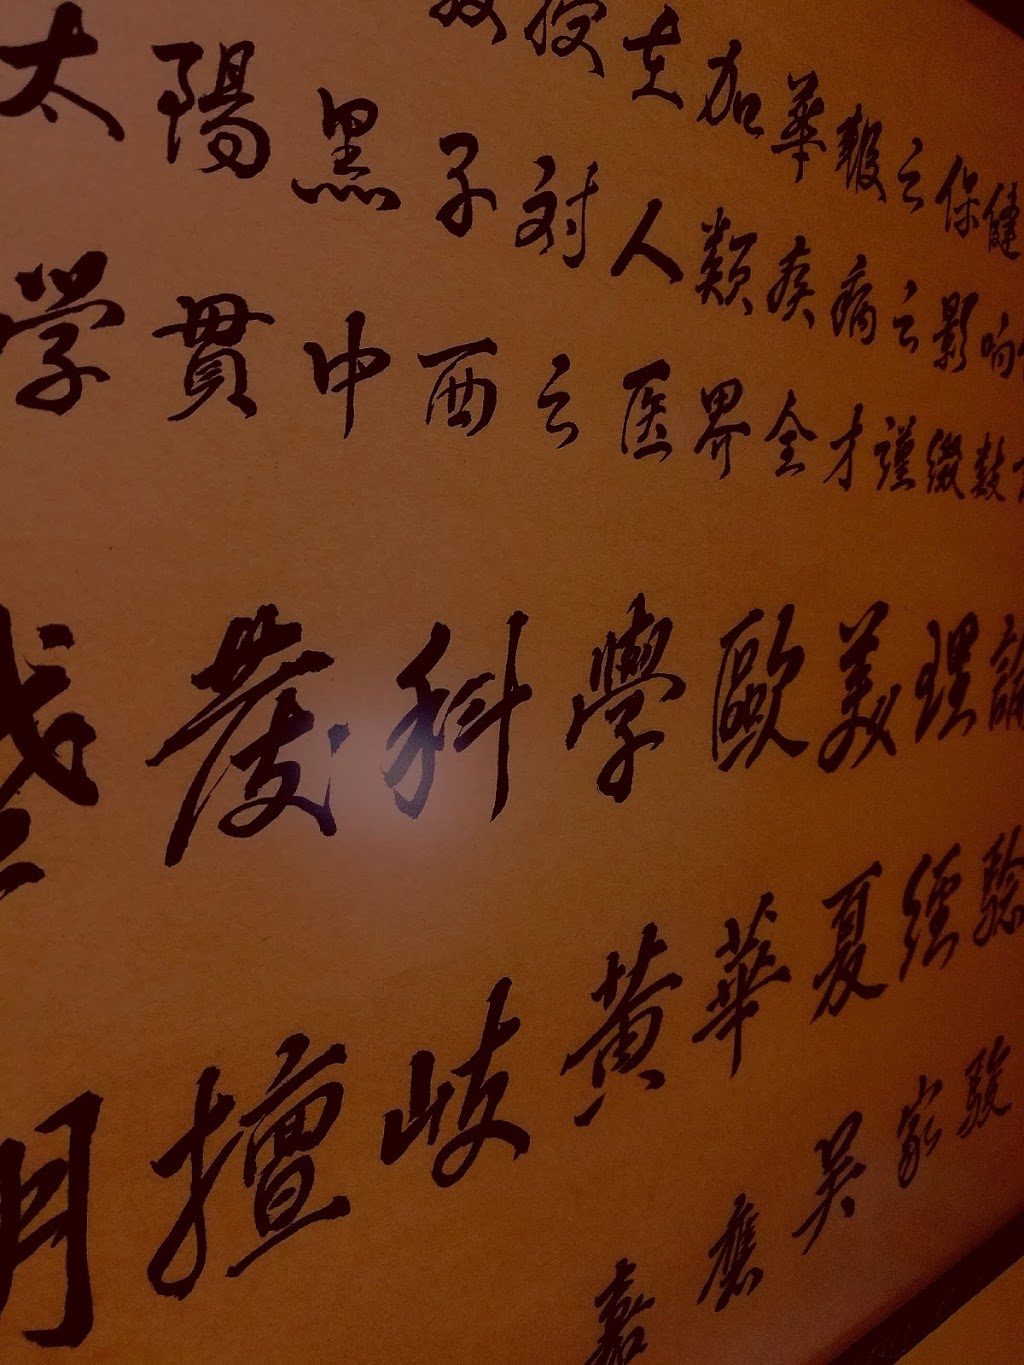 授在加華報之保健
太陽黑子对人類疾病之影响
学貫中西之医界全才謹綴数
發科學歐美理論
擅岐黄華夏經驗
嘉應吴家駿